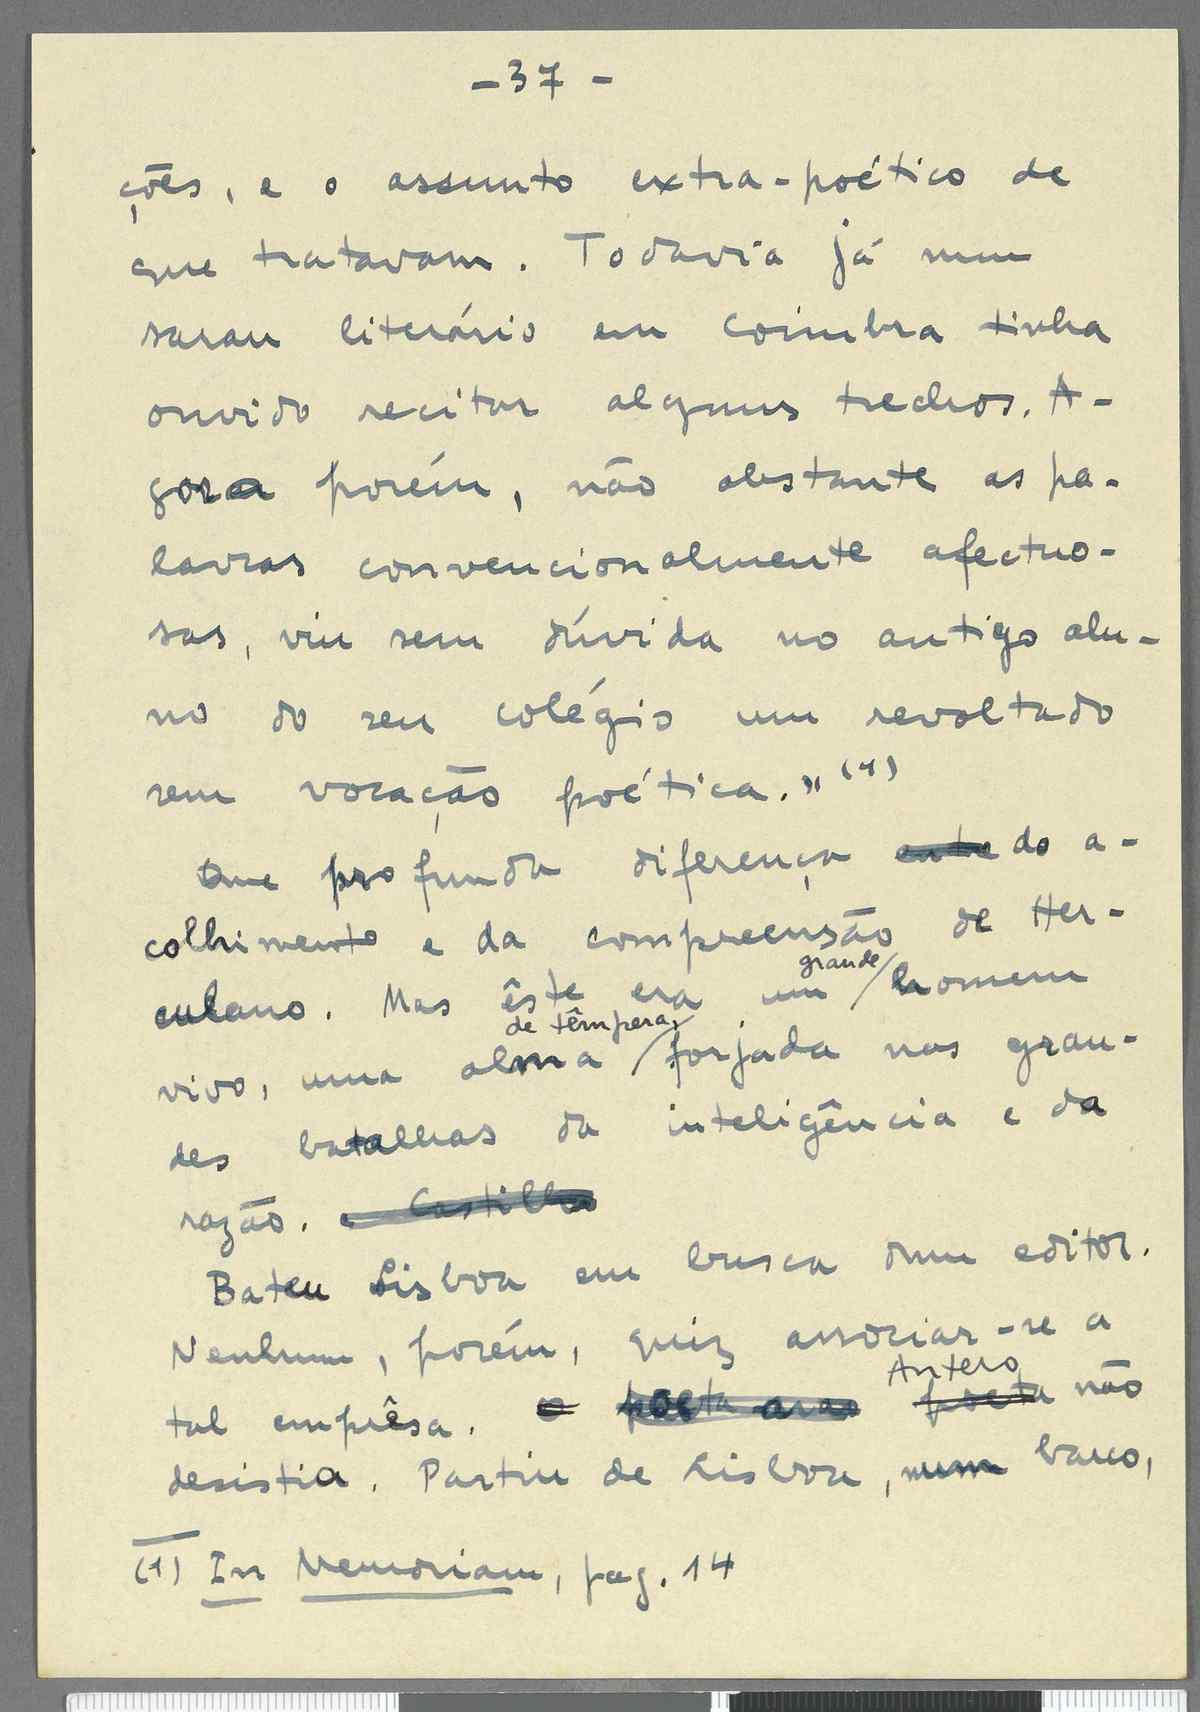 -37-
ções, e o assunto extra-poético de
que tratavam. Todavia já num
sarau literário em Coimbra tinha
ouvido recitar alguns trechos. A-
gora porém, não obstante as pa-
lavras convencionalmente afectuo-
sas, viu sem dúvida no antigo alu-
no do seu colégio um revoltado
sem vocação poética.» (1)
Que profunda diferença ente do a-
colhimento e da compreensão de Her-
culano. Mas êste era um grande homem
vivo, uma alma de têmpera, forjada nas gran-
des batalhas da inteligência e da
razão. e Castilho
Bateu Lisboa em busca dum editor.
Nenhum, porém, quiz associar-se a
tal emprêsa. O poeta Antero poeta não
desistia. Partiu de Lisboa, num barco,
(1) In Memoriam, pag. 14